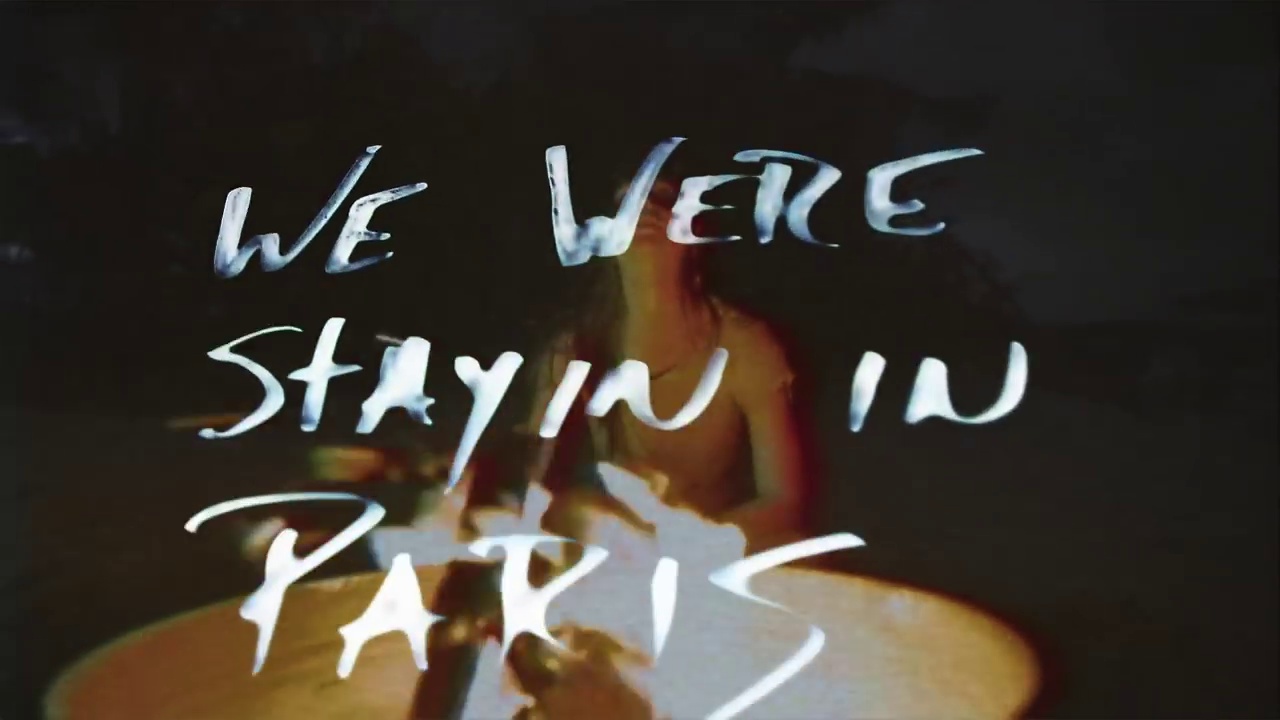 WE WERE
STAYIN IN
PARIS